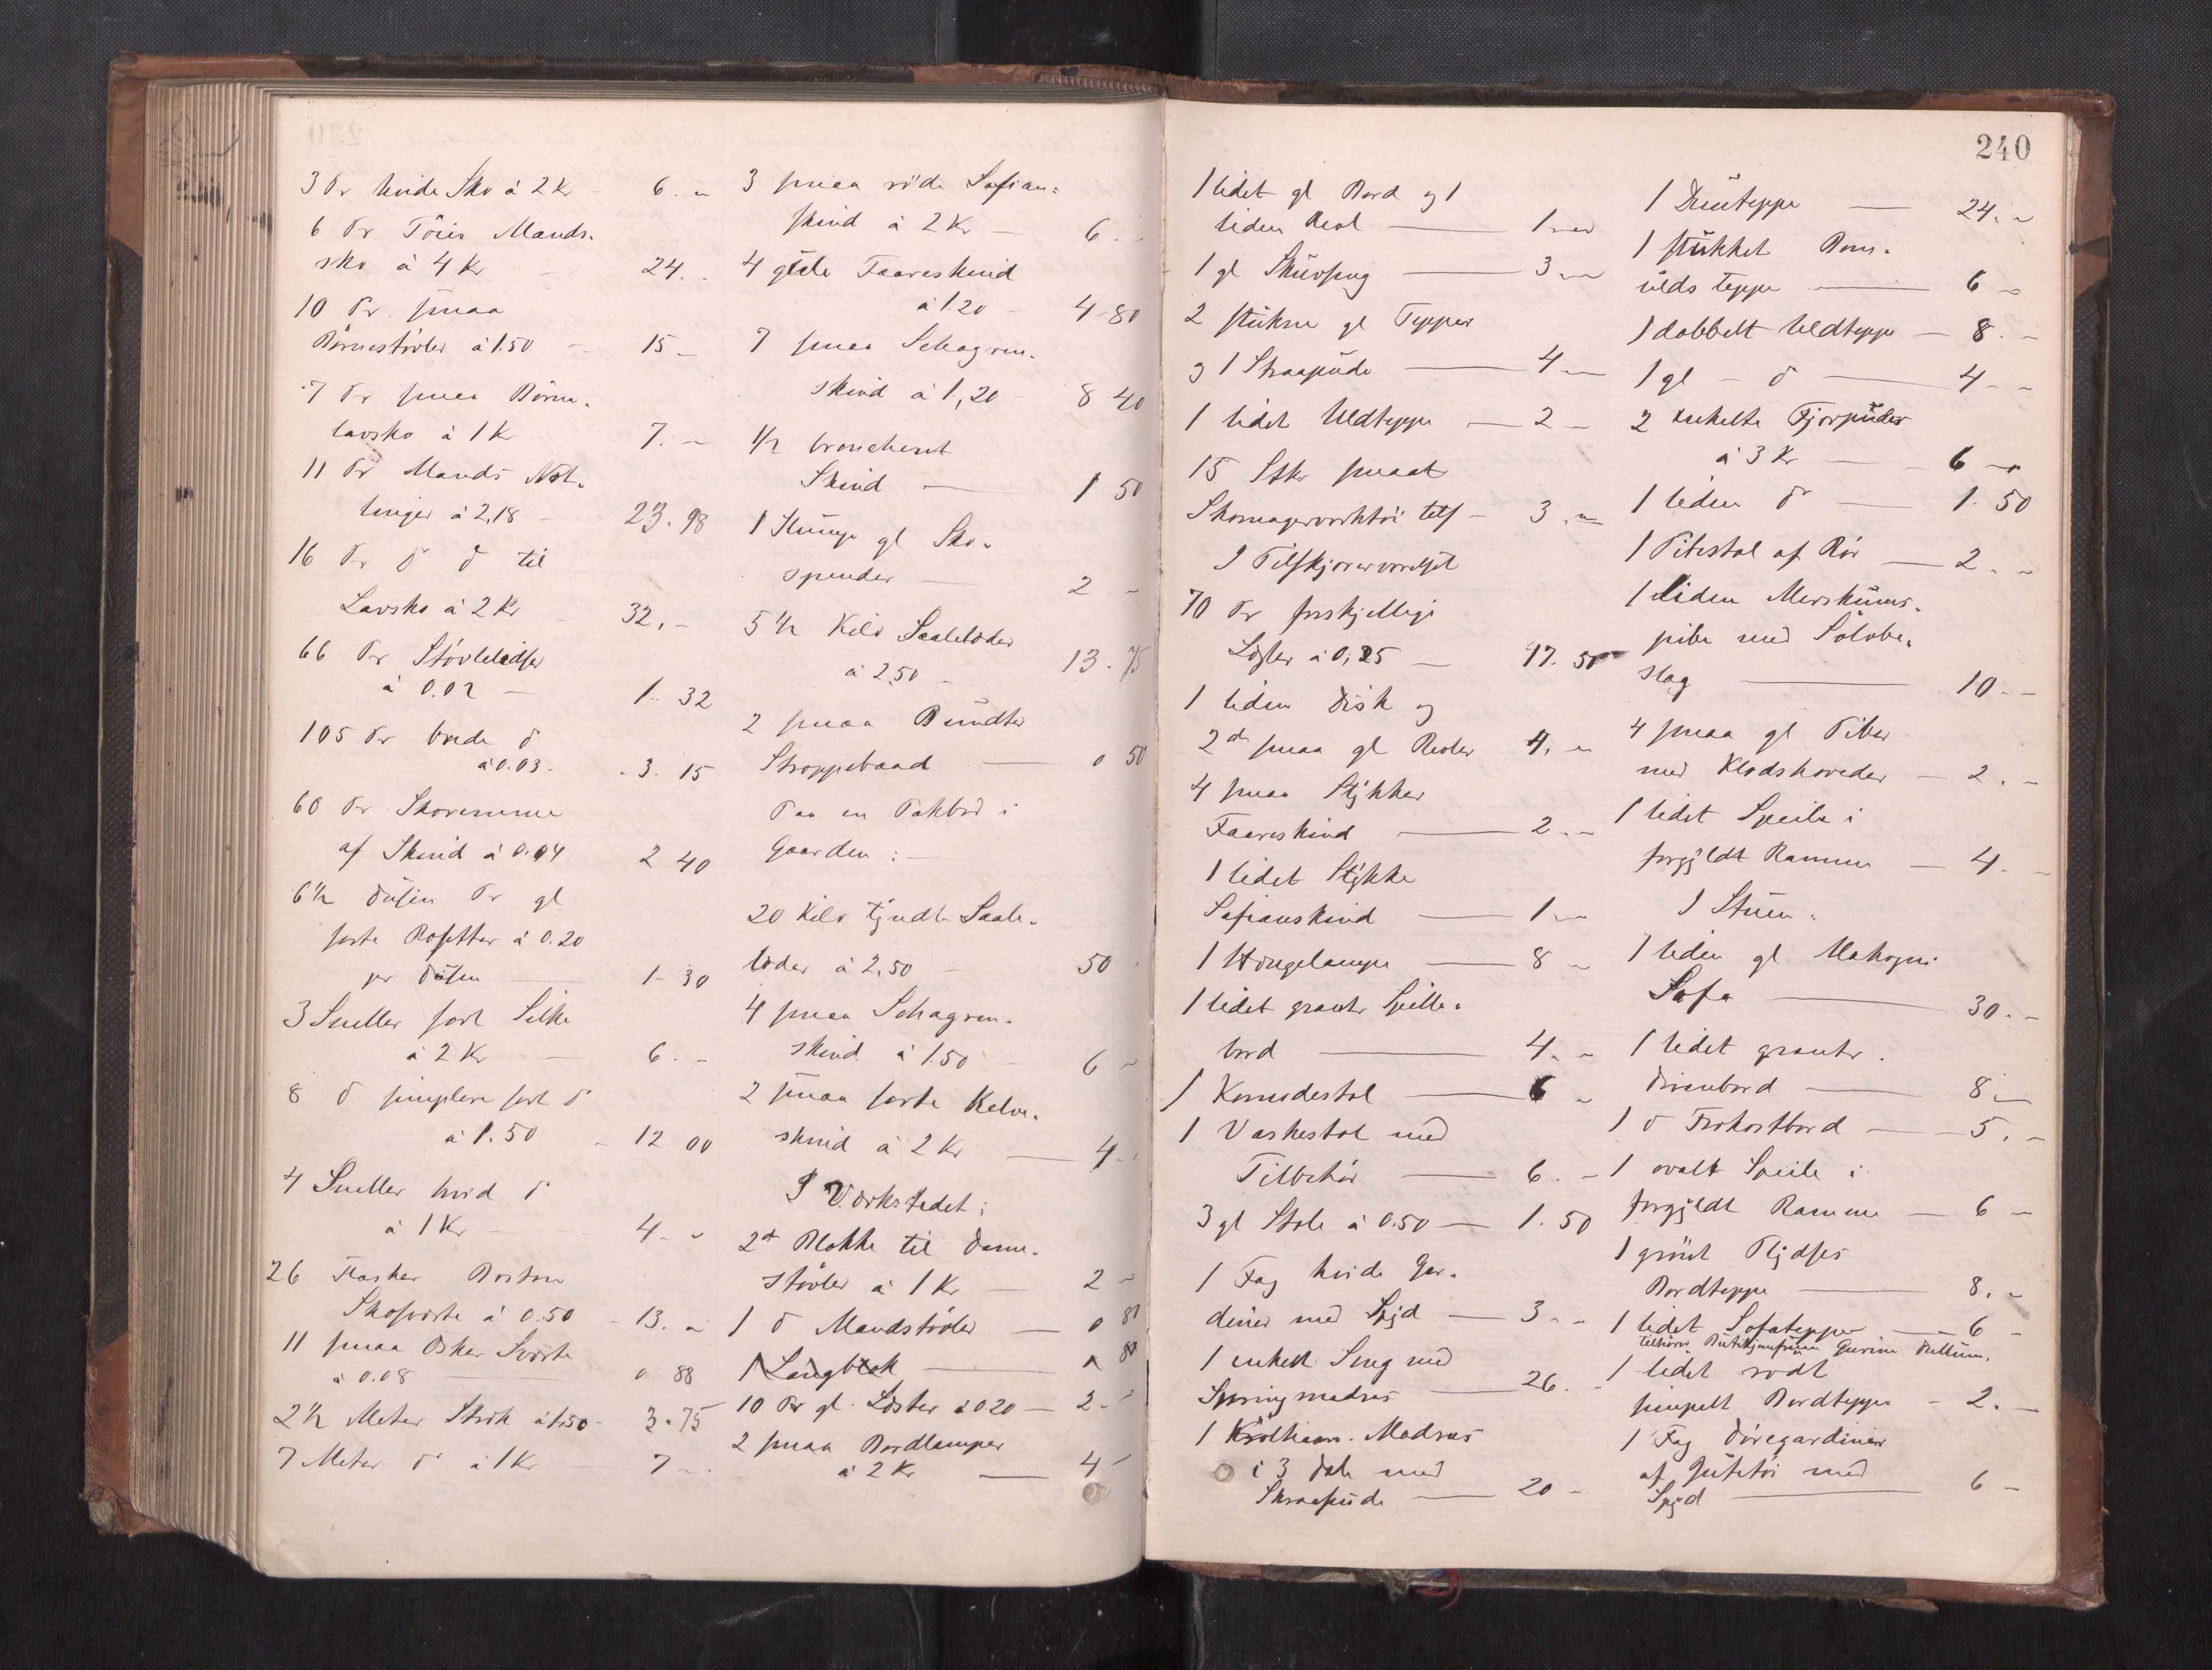 3 Pr hvide Sko à 2 Kr 6. –
6 Pr Töies Mands-
sko à 4 Kr – 24. -
10 Pr smaa
Börnestövler à 1.50 – 15 –
7 Pr smaa Börne-
lavsko à 1 Kr 7. –
11 Pr Mands Nåt-
linger à 2,18 – 23. 98
16 Pr d d til
Lavsko à 2 Kr 32, –
66 Pr Stövlelidser
à 0.02 – 1. 32
105 Pr brede d
à 0.03. - 3. 15
60 Pr Skoremme
af Skind à 0.04 2 40
6 1/2 Dusin Pr gl
sorte Rosetter à 0.20
pr Dusin 1 – 30
3 Sneller sort Silke
à 2 Kr – 6. –
8 d simplere sort d
à 1.50 – 12 00
4 Sneller hvid d
à 1 Kr – 4 – –
26 Flasker Boston
Skosværte à 0.50 – 13. –
11 smaa Æsker Sværte
à 0.08 – 0 88
2 1/2 Meter Strik à 1.50 – 3. 75
7 Meter d à 1 Kr – 7 –
3 smaa röde Safian-
skind à 2 Kr – 6. -
4 gule Faareskind
à 1.20 – 4 – 80
7 smaa Schagren-
skind à 1,20 8 40
1/2 broncheret
Skind – 1 50
1 Slump gl Sko-
spender – 2 –
5 1/2 Kilo Saalelæder
à 2.50 – 13. 75
2 smaa Bundter
Stroppebaand – 0 50
Paa en Pakbod i
Gaarden : –
20 Kilo tyndt Saale-
læder à 2.50 – 50 -
4 smaa Schagren-
skind à 1.50 – 6 –
2 smaa sorte Kalve-
skind à 2 Kr – 4 -
I Værkstedet;
2 d Blokke til Dame-
stövler à 1 Kr – 2 –
1 d Mandstövler – 0 80
1 Langblok – 80
10 Pr gl. Læster à 0.20 – 2. –
2 smaa Bordlamper
à 2 Kr – 4 –
240
1 lidet gl Bord og 1
liden Reol – 1 –
1 gl Skuvseng – 3 –
2 stukne gl Tepper
og 1 Straapude – 4 –
1 lidet Uldteppe – 2 –
15 Stkr smaat
Skomagerværktöi tils – 3. –
I Tilskjærerværelset
70 Pr forskjellige
Læster à 0,25 – 17. 50
1 liden Disk og
2 d smaa gl Reoler 4. –
4 smaa Stykker
Faareskind – 2. –
1 lidet Stykke
Safianskind – 1 –
1 Hængelampe – 8 –
1 lidet grantr Spille-
bord – 4. –
1 Komodestol – 6 –
1 Vaskestol med
Tilbehör – 6. –
3 gl Stole à 0.50 – 1. 50
1 Fag hvide Gar-
diner med Spyd – 3. –
1 enkelt Seng med
Springmadras – 26. –
1 Krölhaars-Madras
i 3 Dele med
Skraapude – 20 –
1 Duntæppe – 24. –
1 stukket Bom-
ulds Teppe – 6 –
1 dobbelt Uldteppe – 8. –
1 gl – d – 4 – –
2 enkelte Fjærpuder
à 3 Kr – 6 –
1 liden d – 1. 50
1 Pibestol af Rör – 2. –
1 Liden Merskums-
pibe med Sölvbe-
slag – 10. –
4 smaa gl Piber
med Klodshoveder – 2. –
1 lidet Speile i
forgyldt Ramme – 4. –
I Stuen.
1 liden gl Mahogni
Sofa – 30. –
1 lidet grantr.
Divanbord – 8. –
1 d Frokostbord – 5. –
1 ovalt Speile i
forgyldt Ramme – 6 –
1 grönt Plydses
Bordteppe – 8. –
1 lidet Sofateppe – 6 –
tilhører Butikjomfruen Gurine
1 lidet rödt
simpelt Bordteppe – 2. –
1 Fag Döregardiner
af Jutetöi med
Spyd – 6 –